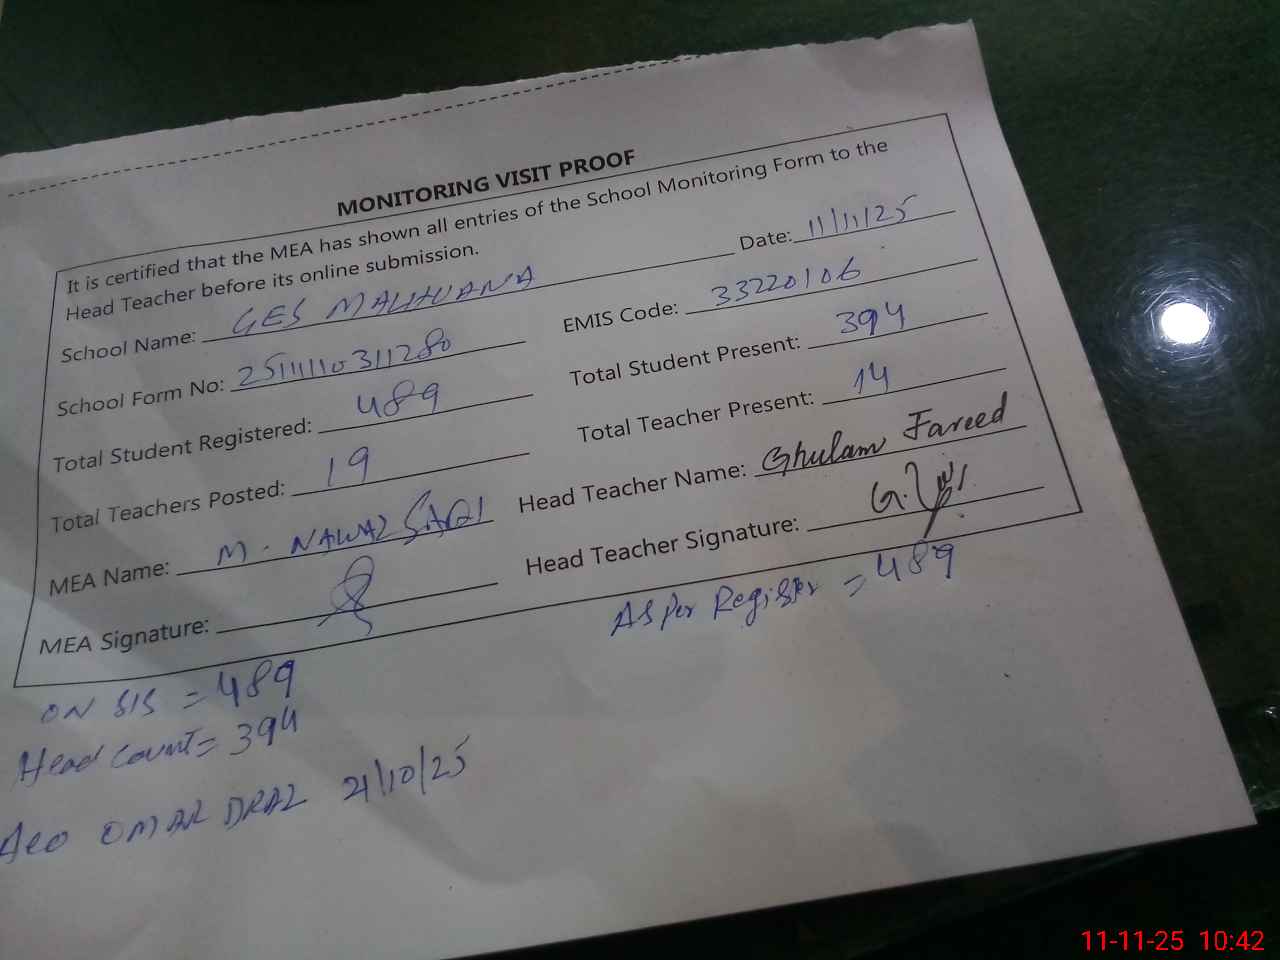 MONITORING VISIT PROOF
It is certified that the MEA has shown all entries of the School Monitoring Form to the
Head Teacher before its online submission.
Date: 11/11/25
School Name: GES MALHUANA
EMIS Code: 33220106
School Form No: 25111110311280
Total Student Present: 394
Total Student Registered: 489
Total Teacher Present: 14
Total Teachers Posted: 19
Head Teacher Name: Ghulam Fareed
MEA Name: M. NAWAZ SAQI
Head Teacher Signature:
MEA Signature:
As per Register = 489
ON SIS = 489
Head Count = 394
AEO OMAR DRAZ 21/10/25
11-11-25 10:42